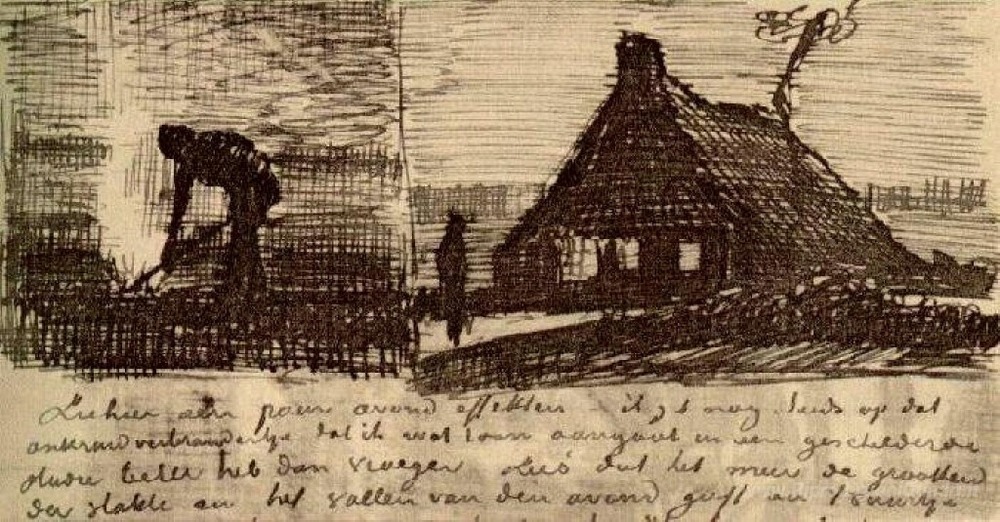 Ziehier een paar avond effekten – ik zit nog steeds op dat
onkruidverbrandertje dat ik wat toon aangaat in een geschilderde
studie beter heb dan vroeger zoo dat het meer de grootheid
der vlakte en het vallen van den avond geeft en 't vuurtje